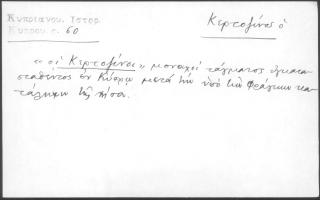 Κυπριανου. Ιστορ.
Κυπρου σ. 60
Κερτοζῖνος ὁ
« οἱ Κερτοζῖνοι », μοναχοί τάγματος ἐγκατα-
σταθέντος ἐν Κύπρῳ μετά τήν ὑπό τῶν Φράγκων κα-
τάληψιν τῆς νήσου.